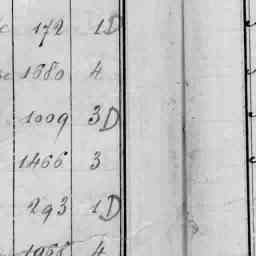 172 1D
1680 4
1009 3D
1466 3
293 1D
4